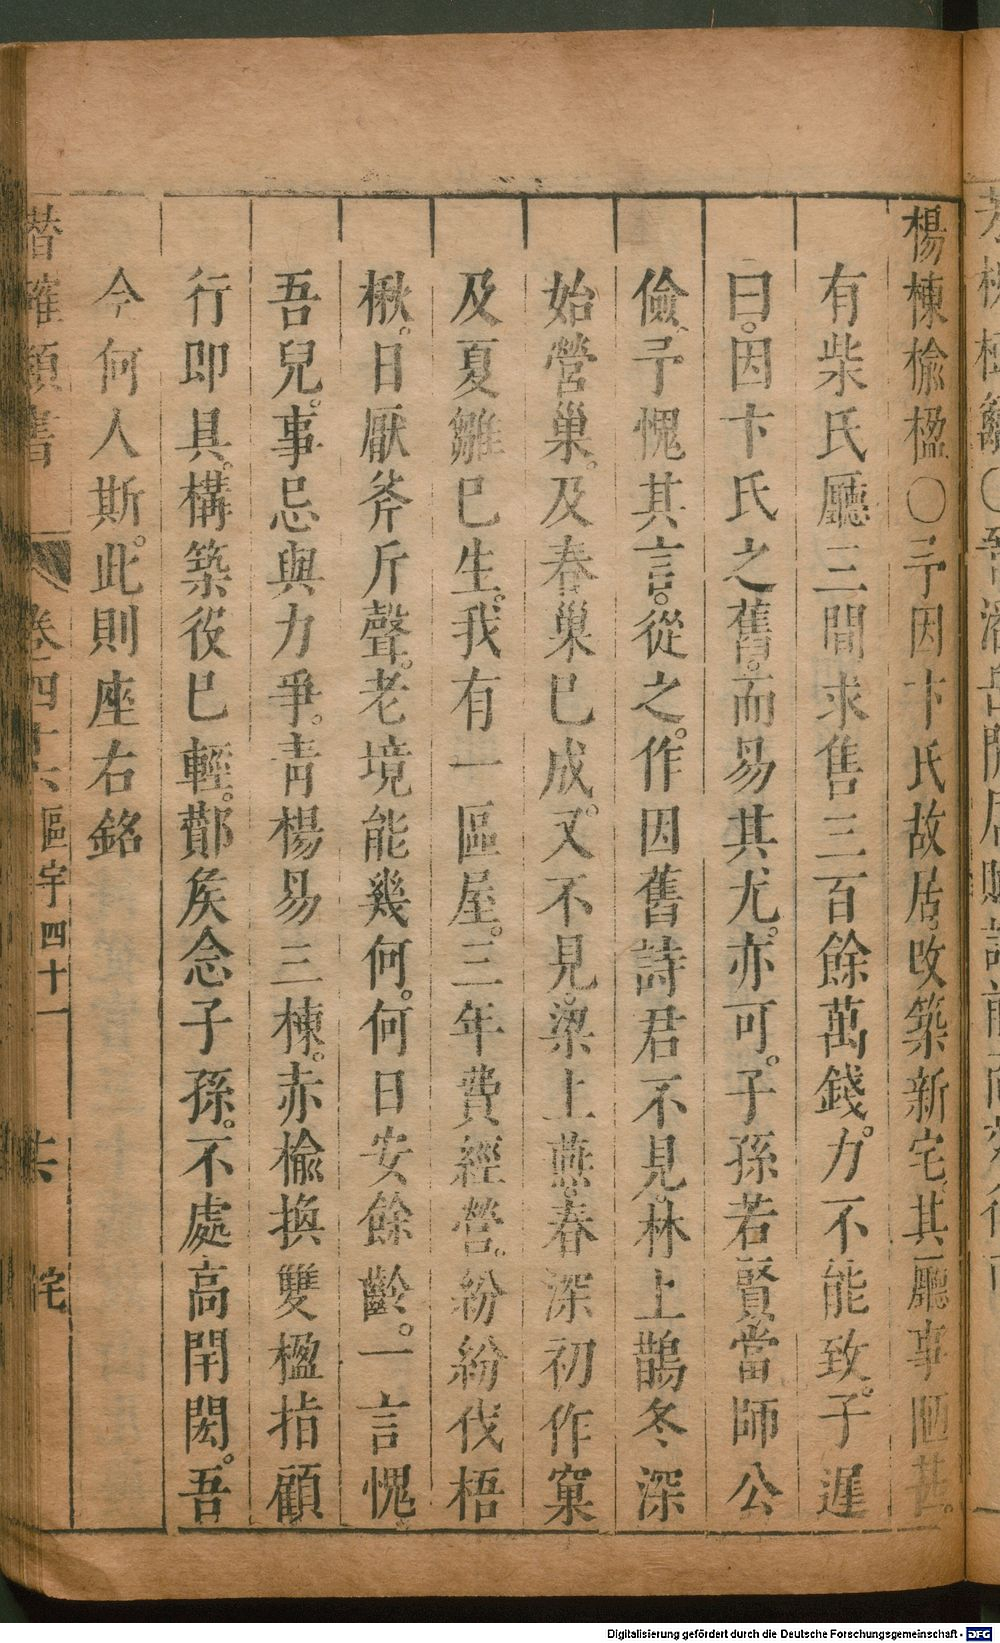 楊棟楡楹○予因卞氏故居改築新宅其廳事陋甚
有柴氏廳三間求售三百餘萬錢力不能致子遲
曰因卞氏之舊而易其尤亦可子孫若賢當師公
儉予愧其言從之作因舊詩君不見林上鵲冬深
始營巢及春巢巳成又不見梁上燕春深初作窠
及夏雛巳生我有一區屋三年費經營紛紛伐梧
楸日厭斧斤聲老境能幾何何日安餘齡一言愧
吾兒事忌與力爭靑楊易三棟赤楡換雙楹指顧
行即具構築役巳輕鄼矦念子孫不處高閈閎吾
今何人斯此則座右銘
潛確類書 卷四十六 區宇四十一 宅
Digitalisierung gefördert durch die Deutsche Forschungsgemeinschaft - DFG